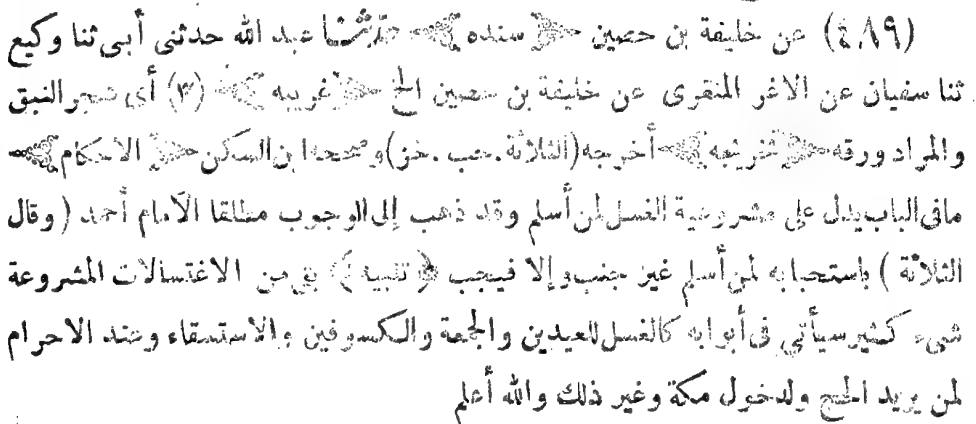 (٤٨٩) عن خليفة بن حصين ﴿ سنده ﴾ حدثنا عبد الله حدثنى أبى ثنا وكيع
ثنا سفيان عن الاغر المنقرى عن خليفة بن حصين الخ ﴿ غريبه ﴾ (٣) أى شجر النبق
والمراد ورقه ﴿ تخريجه ﴾ أخرجه (الثلاثة . حب . خز) وصححه ابن السكن ﴿ الاحكام ﴾
مافى الباب يدل على مشروعية الغسل لمن أسلم وقد ذهب إلى الوجوب مطلقا الامام أحمد (وقال
الثلاثة) باستحبابه لمن أسلم غير جنب وإلا فيجب ﴿ تنبيه ﴾ بقى من الاغتسالات المشروعة
شىء كثير سيأتي فى أبوابه كالغسل للعيدين والجمعة والكسوفين والاستسقاء وعند الاحرام
لمن يريد الحج ولدخول مكة وغير ذلك والله أعلم